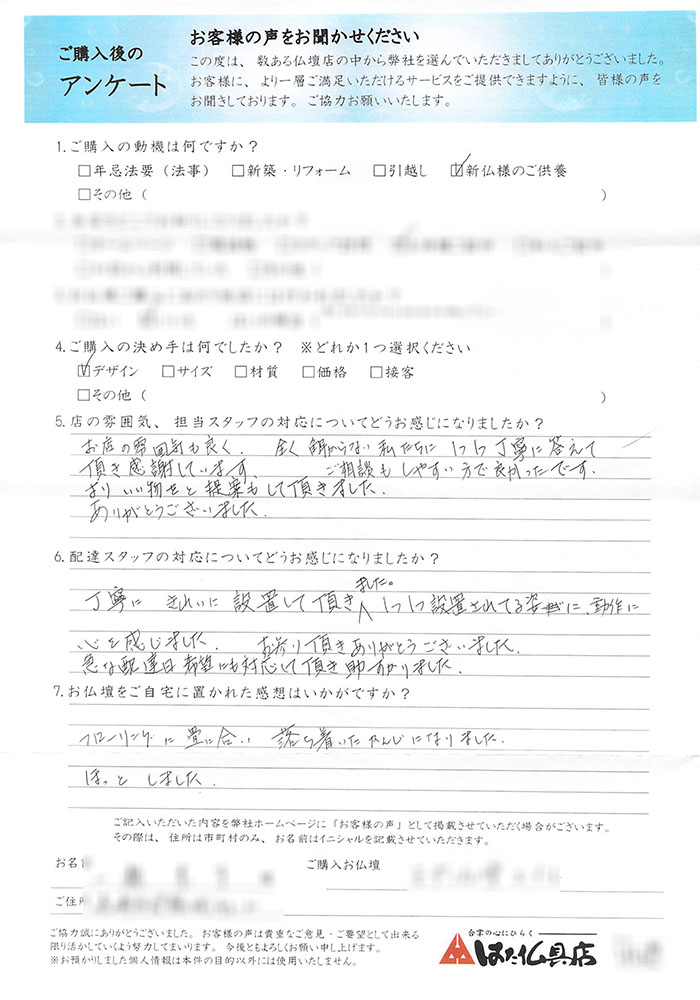 ご購入後の
アンケート
お客様の声をお聞かせください
この度は、数ある仏壇店の中から弊社を選んでいただきましてありがとうございました。
お客様に、より一層ご満足いただけるサービスをご提供できますように、皆様の声を
お聞きしております。ご協力お願いいたします。
1.ご購入の動機は何ですか？
□年忌法要（法事） □新築・リフォーム □引越し ☑新仏様のご供養
□その他（ ）
4.ご購入の決め手は何でしたか？ ※どれか1つ選択ください
☑デザイン □サイズ □材質 □価格 □接客
□その他（ ）
5.店の雰囲気、担当スタッフの対応についてどうお感じになりましたか？
お店の雰囲気も良く、全く解からない私たちに1つ1つ丁寧に答えて
頂き感謝しています ご相談もしやすい方で良かったです.
よりいい物をと提案もして頂きました.
ありがとうございました.
6.配達スタッフの対応についてどうお感じになりましたか？
丁寧に きれいに設置して頂きました。1つ1つ設置されてる姿に、動作に
心を感じました. お参り頂きありがとうございました.
急な配達日希望にも対応して頂き助かりました.
7.お仏壇をご自宅に置かれた感想はいかがですか？
フローリングに畳に合い 落ち着いたかんじになりました.
ほっと しました.
ご記入いただいた内容を弊社ホームページに「お客様の声」として掲載させていただく場合がございます。
その際は、住所は市町村のみ、お名前はイニシャルを記載させていただきます。
お名 ご購入お仏壇
ご住所
ご協力誠にありがとうございました。お客様の声は貴重なご意見・ご要望として出来る
限り活かしていくよう努力してまいります。今後ともよろしくお願い申し上げます。
※お預かりしました個人情報は本件の目的以外には使用いたしません。
合掌の心にひらく
はた仏具店